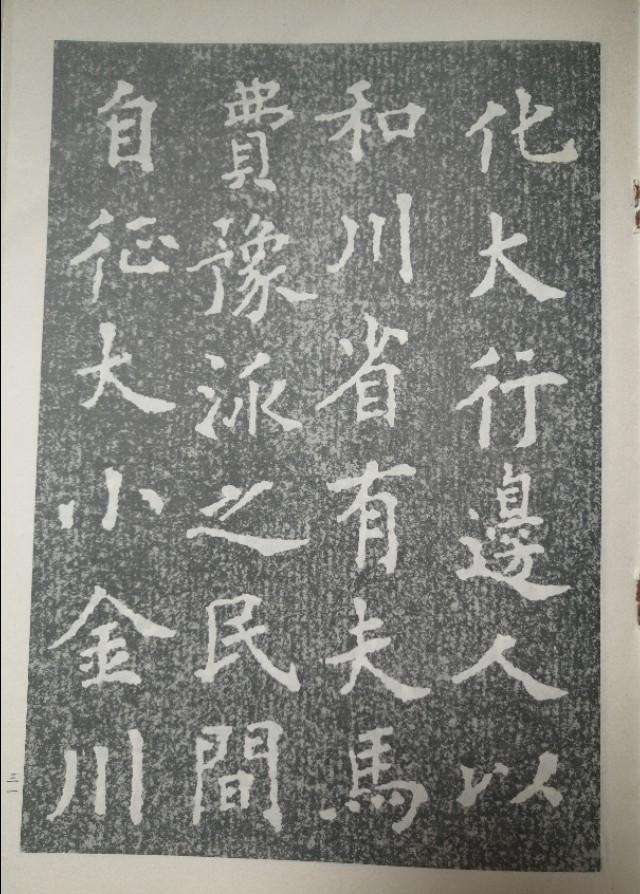 化大行邊人以
和川省有夫馬
費豫泳之民間
自征大小金川
三一